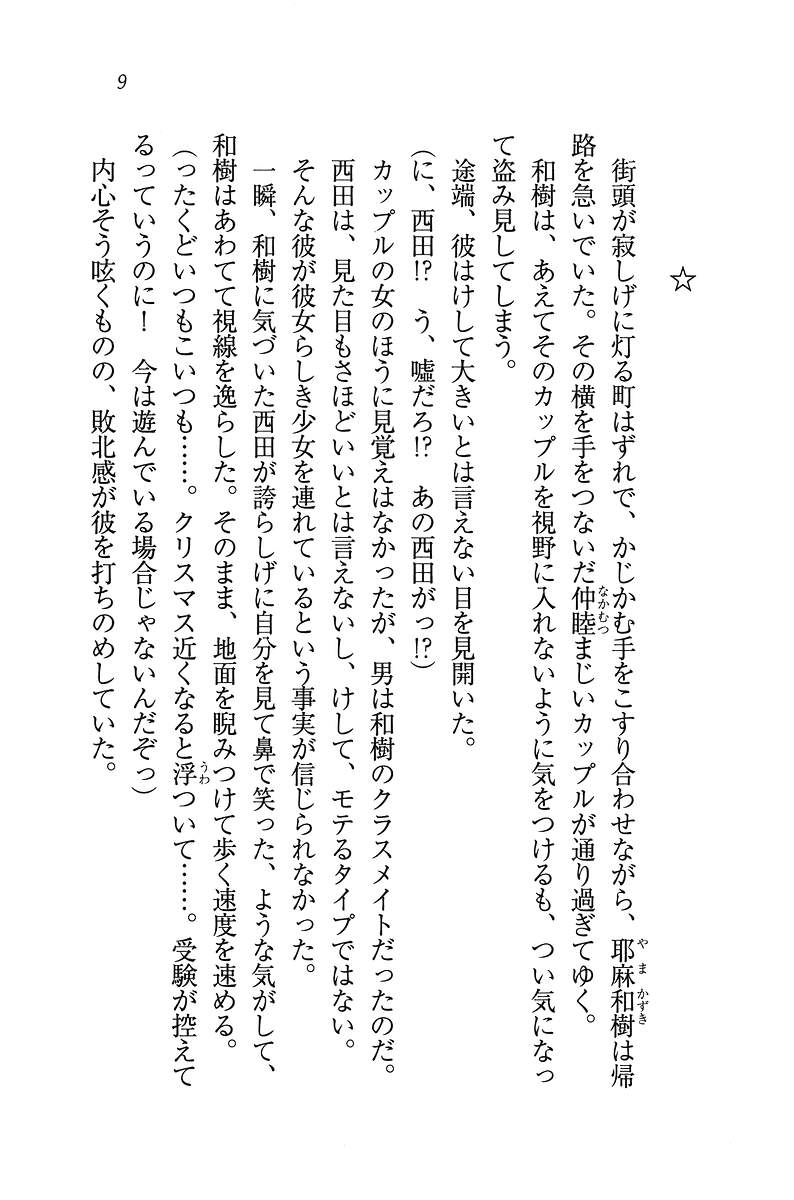 9
☆
街頭が寂しげに灯る町はずれで、かじかむ手をこすり合わせながら、耶麻和樹は帰
路を急いでいた。その横を手をつないだ仲睦まじいカップルが通り過ぎてゆく。
和樹は、あえてそのカップルを視野に入れないように気をつけるも、つい気になっ
て盗み見してしまう。
途端、彼はけして大きいとは言えない目を見開いた。
(に、西田!?　う、嘘だろ!?　あの西田がっ!?)
カップルの女のほうに見覚えはなかったが、男は和樹のクラスメイトだったのだ。
西田は、見た目もさほどいいとは言えないし、けして、モテるタイプではない。
そんな彼が彼女らしき少女を連れているという事実が信じられなかった。
一瞬、和樹に気づいた西田が誇らしげに自分を見て鼻で笑った、ような気がして、
和樹はあわてて視線を逸らした。そのまま、地面を睨みつけて歩く速度を速める。
(ったくどいつもこいつも……。クリスマス近くなると浮ついて……。受験が控えて
るっていうのに！　今は遊んでいる場合じゃないんだぞっ)
内心そう呟くものの、敗北感が彼を打ちのめしていた。